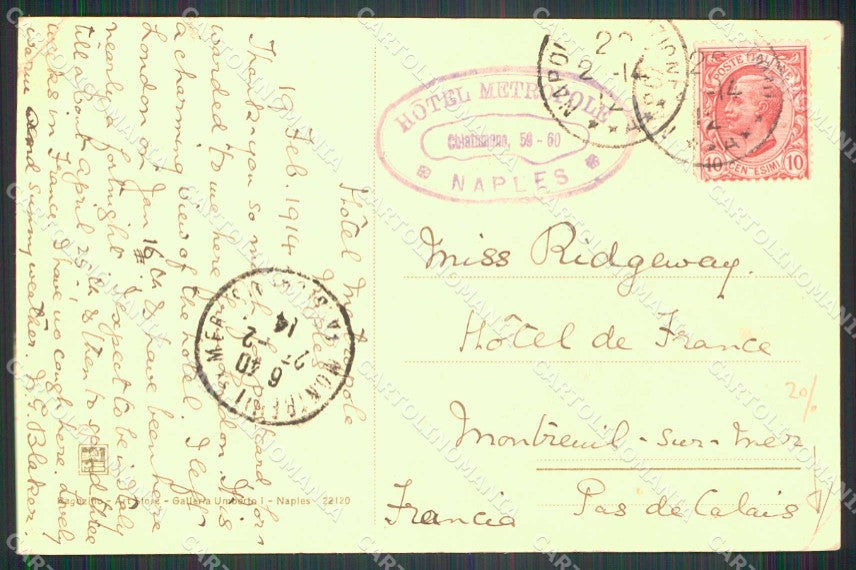 Hôtel Metropole
Naples
19 Feb. 1914
Thank-you so much for postcard for-
warded to me here from London. It is
a charming view of the hotel. I left
London on Jan 16th & have been here
nearly a fortnight. I expect to be in Italy
till about April 25th & then to spend three
weeks in France. I have no cough here, lovely
warm and sunny weather. Blaker.
HOTEL METROPOLE
Chiatamone, 58 - 60
NAPLES
NAPOLI
POSTE ITALIANE
10 CENTESIMI 10
Miss Ridgeway.
Hôtel de France
Montreuil-sur-Mer
Pas de Calais
Francia
20/
MONTREUIL S. MER
6 40
21-2
14
Ragozino - Art Store - Galleria Umberto I - Naples - 22120
CARTOLINOMANIA